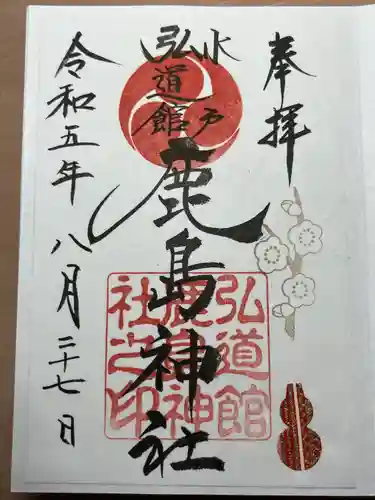 奉拝
水戸
弘道館
鹿島神社
令和五年八月二十七日
弘道館
鹿島神
社之印